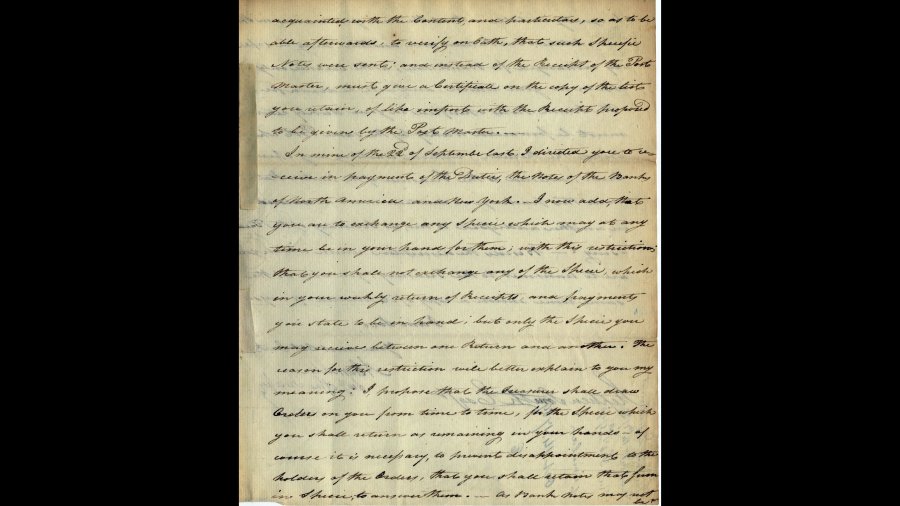 acquainted with the Content, and particulars, so as to be
able afterwards, to verify on Oath, that such Specific
Notes were sent; and instead of the Receipt of the Post
Master, must give a Certificate on the copy of the list
you retain, of like import with the Receipt proposed
to be given by the Post Master.—
In mine of the 22d. of September last, I directed you to re-
-ceive in payment of the Duties, the Notes of the Banks
of North America and New York.— I now add, that
you are to exchange any Specie which may at any
time be in your hand for them; with this restriction,
that you shall not exchange any of the Specie, which
in your weekly return of Receipts and payments
you state to be in hand; but only the Specie you
may receive between one Return and another. The
reason for this restriction will better explain to you my
meaning: I propose that the Treasurer shall draw
Orders on you from time to time, for the Specie which
you shall return as remaining in your hands — of
course it is necessary, to prevent disappointment to the
holders of the Orders, that you shall retain that Sum
in Specie, to answer them.— As Bank Notes may not
be